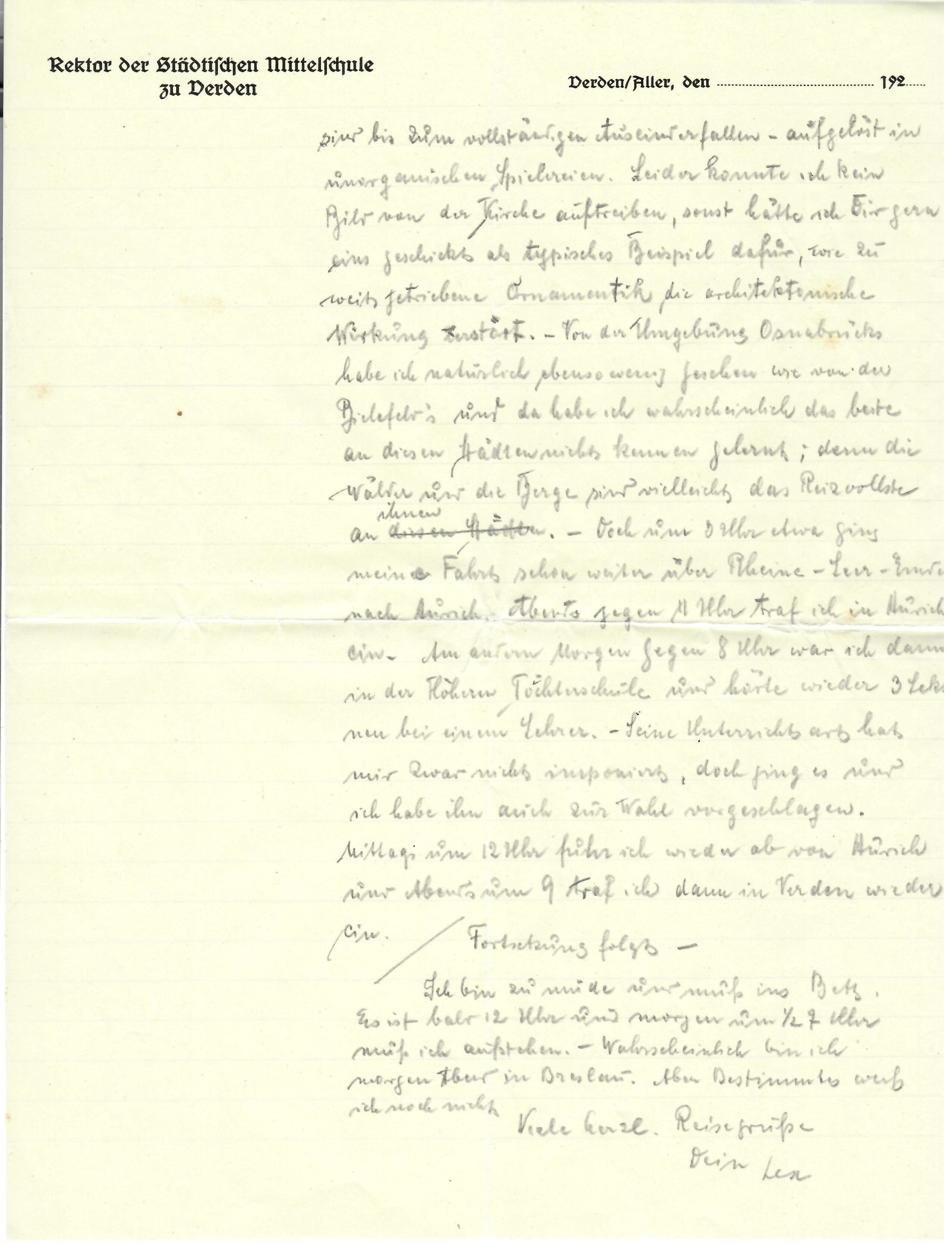 Rektor der Städtischen Mittelschule
zu Verden
Verden/Aller, den ........................ 192.....
sind bis zum vollständigen Auseinderfallen – aufgelöst in
unorganischen Spielereien. Leider konnte ich kein
Bild von der Kirche auftreiben, sonst hätte ich Dir gern
eins geschickt als typisches Beispiel dafür, wie zu
weit getriebene Ornamentik die architektonische
Wirkung zerstört. – Von der Umgebung Osnabrücks
habe ich natürlich ebensowenig gesehen wie von der
Bielefeld's und da habe ich wahrscheinlich das beste
an diesen Städten nicht kennen gelernt; denn die
Wälder und die Berge sind vielleicht das Reizvollste
ihnen
an diesen Städten. – Doch um 3 Uhr etwa ging
meine Fahrt schon weiter über Rheine – Leer – Emde
nach Aurich. Abends gegen 11 Uhr traf ich in Aurich
ein. Am andern Morgen gegen 8 Uhr war ich dann
in der Höhern Töchterschule und hörte wieder 3 Lek
nen bei einem Lehrer. – Seine Unterrichtsart hat
mir zwar nicht imponiert, doch ging es und
ich habe ihn auch zur Wahl vorgeschlagen.
Mittags um 12 Uhr fuhr ich wieder ab von Aurich
und Abends um 9 traf ich dann in Verden wieder
ein.
Fortsetzung folgt –
Ich bin zu müde und muß ins Bett.
Es ist bald 12 Uhr und morgen um ½ 7 Uhr
muß ich aufstehen. – Wahrscheinlich bin ich
morgen Abend in Breslau. Aber Bestimmtes weiß
ich noch nicht
Viele herzl. Reisegrüße
Dein Lex